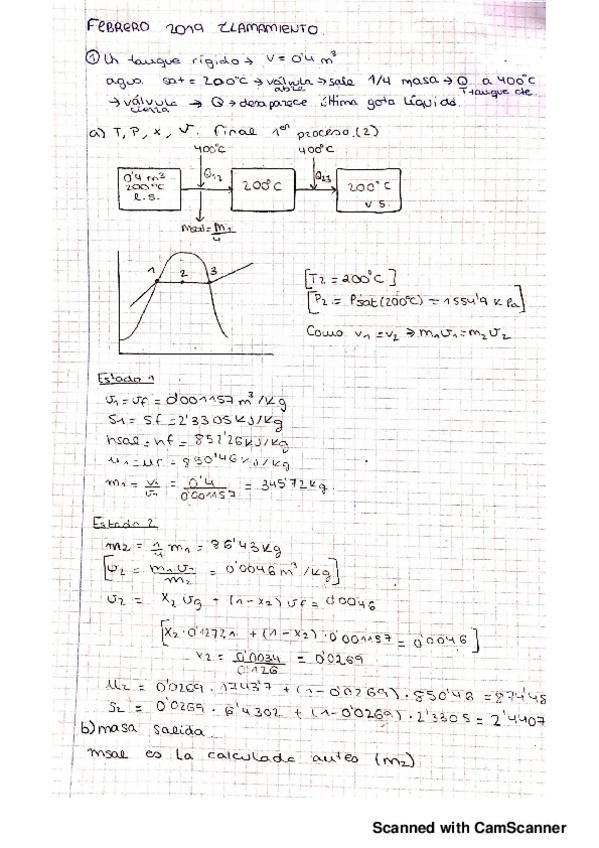 FEBRERO 2019 LLAMAMIENTO.
① Un tanque rígido → V = 0'4 m³
agua sat = 200°C → válvula abre → sale 1/4 masa → Q a 400°C
T tanque cte
→ válvula cierra → Q → desaparece última gota líquido.
a) T, P, x, v. final 1er proceso. (2)
400°C 400°C
0'4 m³ 200°C l.s.
Q12
200°C
Q23
200°C v s.
msal = m1/4
1 2 3
[T2 = 200°C]
[P2 = Psat (200°C) = 1554'9 kPa]
Como v1 = v2 ⇒ m1v1 = m2v2
Estado 1
v1 = vf = 0'001157 m³/kg
s1 = sf = 2'3305 kJ/kg
hsal = hf = 852'26 kJ/kg
u1 = uf = 850'46 kJ/kg
m1 = V1/v1 = 0'4/0'001157 = 345'72 kg
Estado 2
m2 = 1/4 m1 = 86'43 kg
[v2 = m1v1/m2 = 0'0046 m³/kg]
v2 = x2 vg + (1-x2) vf = 0'0046
[x2·0'12721 + (1-x2)·0'001157 = 0'0046]
x2 = 0'0034/0'126 = 0'0269
u2 = 0'0269 · 1743'7 + (1-0'0269) · 850'48 = 874'48
s2 = 0'0269 · 6'4302 + (1-0'0269) · 2'3305 = 2'4407
b) masa salida
msal es la calculada antes (m2)
Scanned with CamScanner